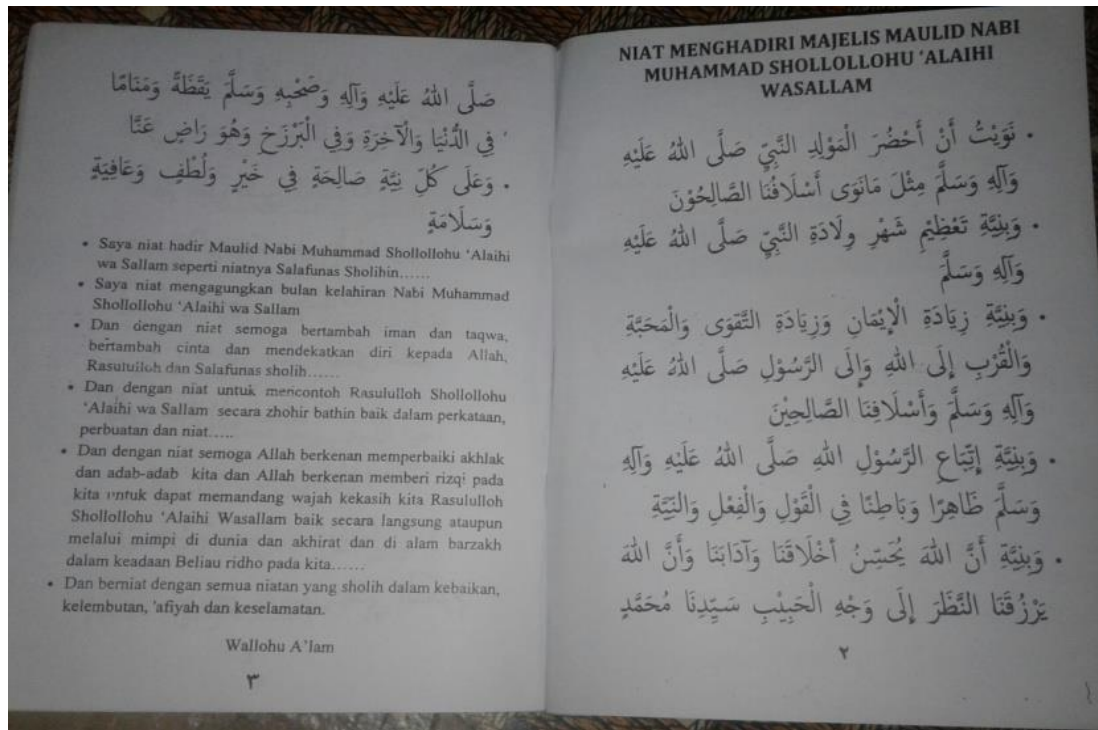 NIAT MENGHADIRI MAJELIS MAULID NABI
MUHAMMAD SHOLLOLLOHU ‘ALAIHI
WASALLAM
• نَوَيْتُ أَنْ أَحْضُرَ الْمَوْلِدِ النَّبِيِّ صَلَّى اللهُ عَلَيْهِ
وَآلِهِ وَسَلَّمَ مِثْلَ مَانَوَى أَسْلَافُنَا الصَّالِحُوْنَ
• وَبِنِيَّةِ تَعْظِيْمِ شَهْرِ وِلَادَةِ النَّبِيِّ صَلَّى اللهُ عَلَيْهِ
وَآلِهِ وَسَلَّمَ
• وَبِنِيَّةِ زِيَادَةِ الْإِيْمَانِ وَزِيَادَةِ التَّقْوَى وَالْمَحَبَّةِ
وَالْقُرْبِ إِلَى اللهِ وَإِلَى الرَّسُوْلِ صَلَّى اللهُ عَلَيْهِ
وَآلِهِ وَسَلَّمَ وَأَسْلَافِنَا الصَّالِحِيْنَ
• وَبِنِيَّةِ إِتِّبَاعِ الرَّسُوْلِ اللهِ صَلَّى اللهُ عَلَيْهِ وَآلِهِ
وَسَلَّمَ ظَاهِرًا وَبَاطِنًا فِي الْقَوْلِ وَالْفِعْلِ وَالنِّيَّةِ
• وَبِنِيَّةِ أَنَّ اللهَ يُحَسِّنُ أَخْلَاقَنَا وَآدَابَنَا وَأَنَّ اللهَ
يَرْزُقَنَا النَّظَرَ إِلَى وَجْهِ الْحَبِيْبِ سَيِّدِنَا مُحَمَّدٍ
٢
صَلَّى اللهُ عَلَيْهِ وَآلِهِ وَصَحْبِهِ وَسَلَّمَ يَقَظَةً وَمَنَامًا
فِي الدُّنْيَا وَالْآخِرَةِ وَفِي الْبَرْزَخِ وَهُوَ رَاضٍ عَنَّا
• وَعَلَى كُلِّ نِيَّةٍ صَالِحَةٍ فِي خَيْرٍ وَلُطْفٍ وَعَافِيَةٍ
وَسَلَامَةٍ
• Saya niat hadir Maulid Nabi Muhammad Shollollohu ‘Alaihi
wa Sallam seperti niatnya Salafunas Sholihin……
• Saya niat mengagungkan bulan kelahiran Nabi Muhammad
Shollollohu ‘Alaihi wa Sallam
• Dan dengan niat semoga bertambah iman dan taqwa,
bertambah cinta dan mendekatkan diri kepada Allah,
Rasululloh dan Salafunas sholih……
• Dan dengan niat untuk mencontoh Rasululloh Shollollohu
‘Alaihi wa Sallam secara zhohir bathin baik dalam perkataan,
perbuatan dan niat…..
• Dan dengan niat semoga Allah berkenan memperbaiki akhlak
dan adab-adab kita dan Allah berkenan memberi rizqi pada
kita untuk dapat memandang wajah kekasih kita Rasululloh
Shollollohu ‘Alaihi Wasallam baik secara langsung ataupun
melalui mimpi di dunia dan akhirat dan di alam barzakh
dalam keadaan Beliau ridho pada kita……
• Dan berniat dengan semua niatan yang sholih dalam kebaikan,
kelembutan, 'afiyah dan keselamatan.
Wallohu A’lam
٣